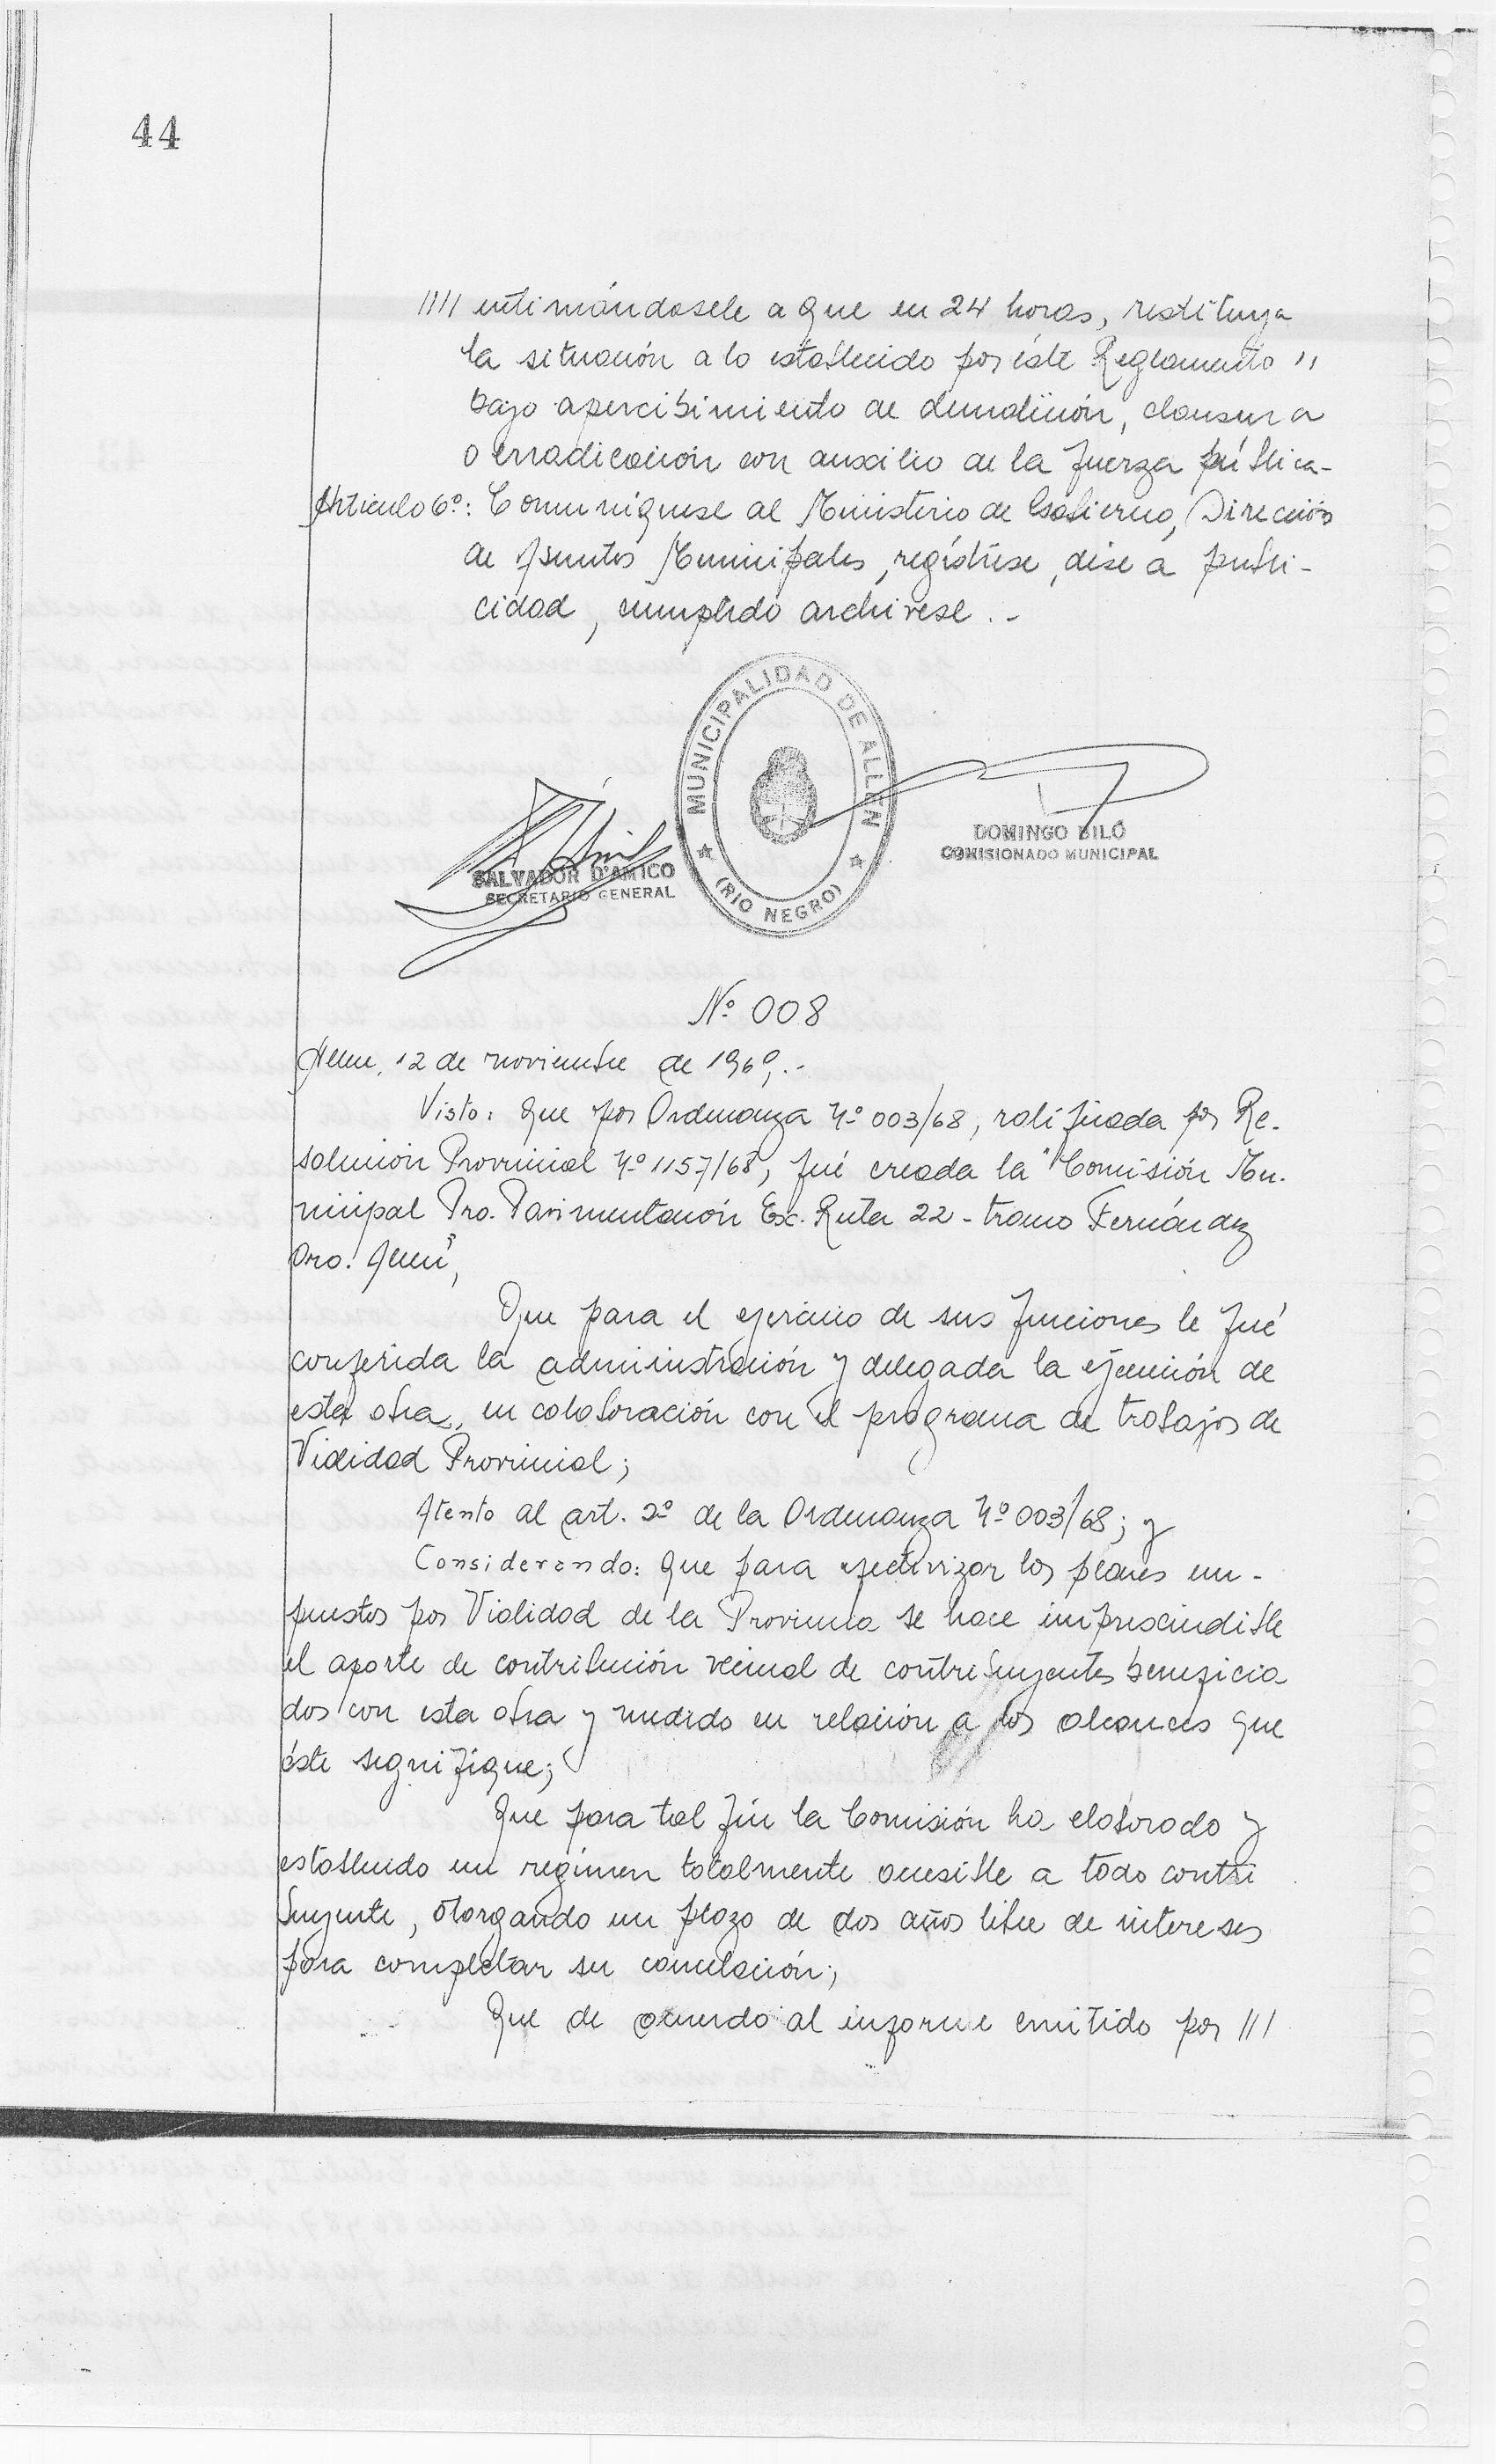 44
//// intimándosele a que en 24 horas, restituya
la situación a lo establecido por éste Reglamento //
bajo apercibimiento de demolición, clausura
o erradicación con auxilio de la fuerza pública-
Artículo 6º: Comuníquese al Ministerio de Gobierno, Dirección
de Asuntos Municipales, regístrese, dése a publi-
cidad, cumplido archívese.-
MUNICIPALIDAD DE ALLEN
(RIO NEGRO)
DOMINGO BILÓ
COMISIONADO MUNICIPAL
SALVADOR D'AMICO
SECRETARIO GENERAL
Nº 008
Allen, 12 de noviembre de 1969.-
Visto: Que por Ordenanza Nº 003/68, ratificada por Re-
solución Provincial Nº 1157/68, fué creada la "Comisión Mu-
nicipal Pro. Pavimentación Ex. Ruta 22 - tramo Fernández
Oro. Allen",
Que para el ejercicio de sus funciones le fué
conferida la administración y delegada la ejecución de
esta obra, en colaboración con el programa de trabajos de
Vialidad Provincial;
Atento al art. 2º de la Ordenanza Nº 003/68; y
Considerando: Que para efectivizar los planes im-
puestos por Vialidad de la Provincia se hace imprescindible
el aporte de contribución vecinal de contribuyentes beneficia
dos con esta obra y medido en relación a los alcances que
éste signifique;
Que para tal fin la Comisión ha elaborado y
establecido un regimen totalmente accesible a todo contri
buyente, otorgando un plazo de dos años libre de intereses
para completar su cancelación;
Que de acuerdo al informe emitido por ///